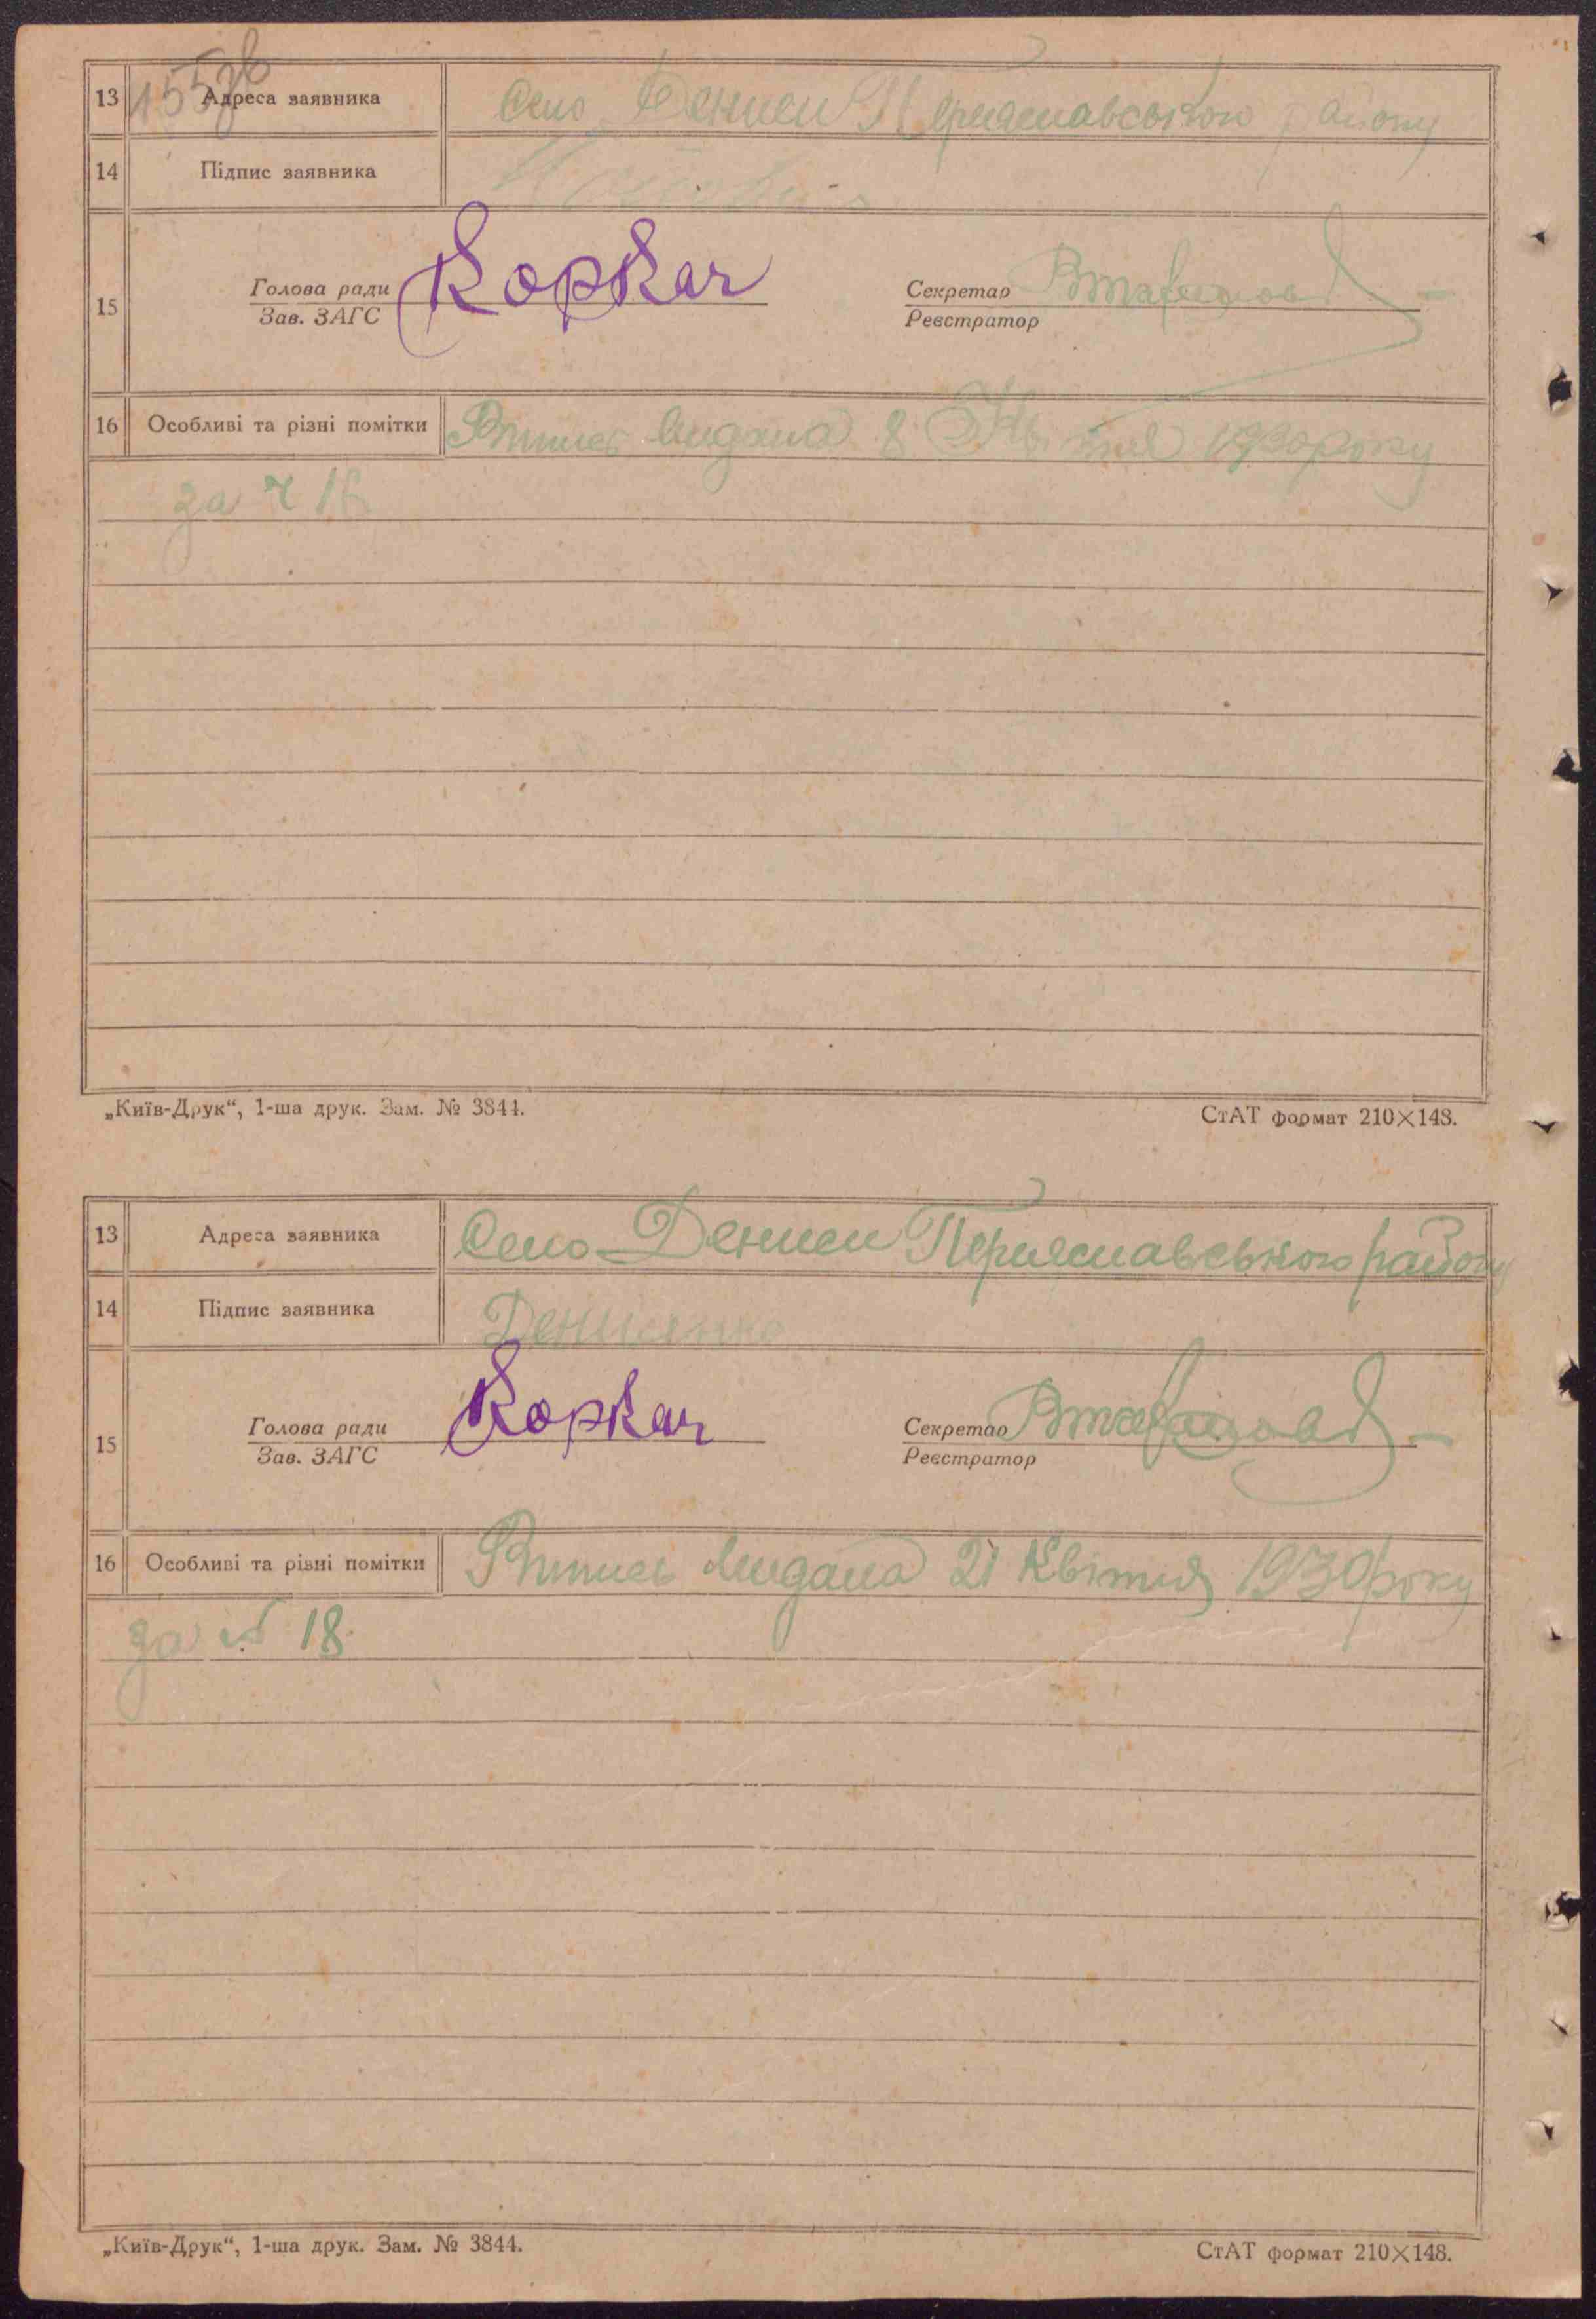 155зв
13 Адреса заявника Село Дениси Переяславського району
14 Підпис заявника
15 Голова ради Коркач Секретар
Зав. ЗАГС Реєстратор
16 Особливі та різні помітки Витись видана 8 Квітня 1930 року
за ч 16
„Київ-Друк“, 1-ша друк. Зам. № 3844.
СтАТ формат 210×148.
13 Адреса заявника Село Дениси Переяславського району
14 Підпис заявника Денисенко
15 Голова ради Коркач Секретар
Зав. ЗАГС Реєстратор
16 Особливі та різні помітки Витись видана 21 Квітня 1930 року
за № 18
„Київ-Друк“, 1-ша друк. Зам. № 3844.
СтАТ формат 210×148.